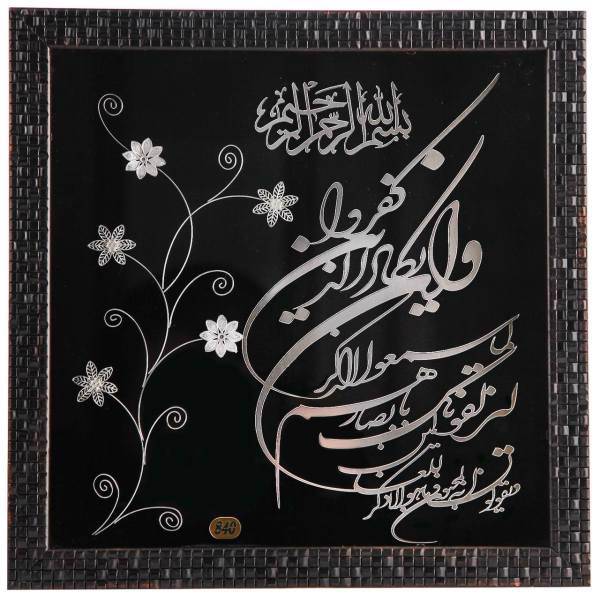 بسم الله الرحمن الرحیم
وان یکاد الذین کفروا
لیزلقونک بابصارهم
لما سمعوا الذکر
ویقولون انه لمجنون
وما هو الا ذکر للعالمین
840